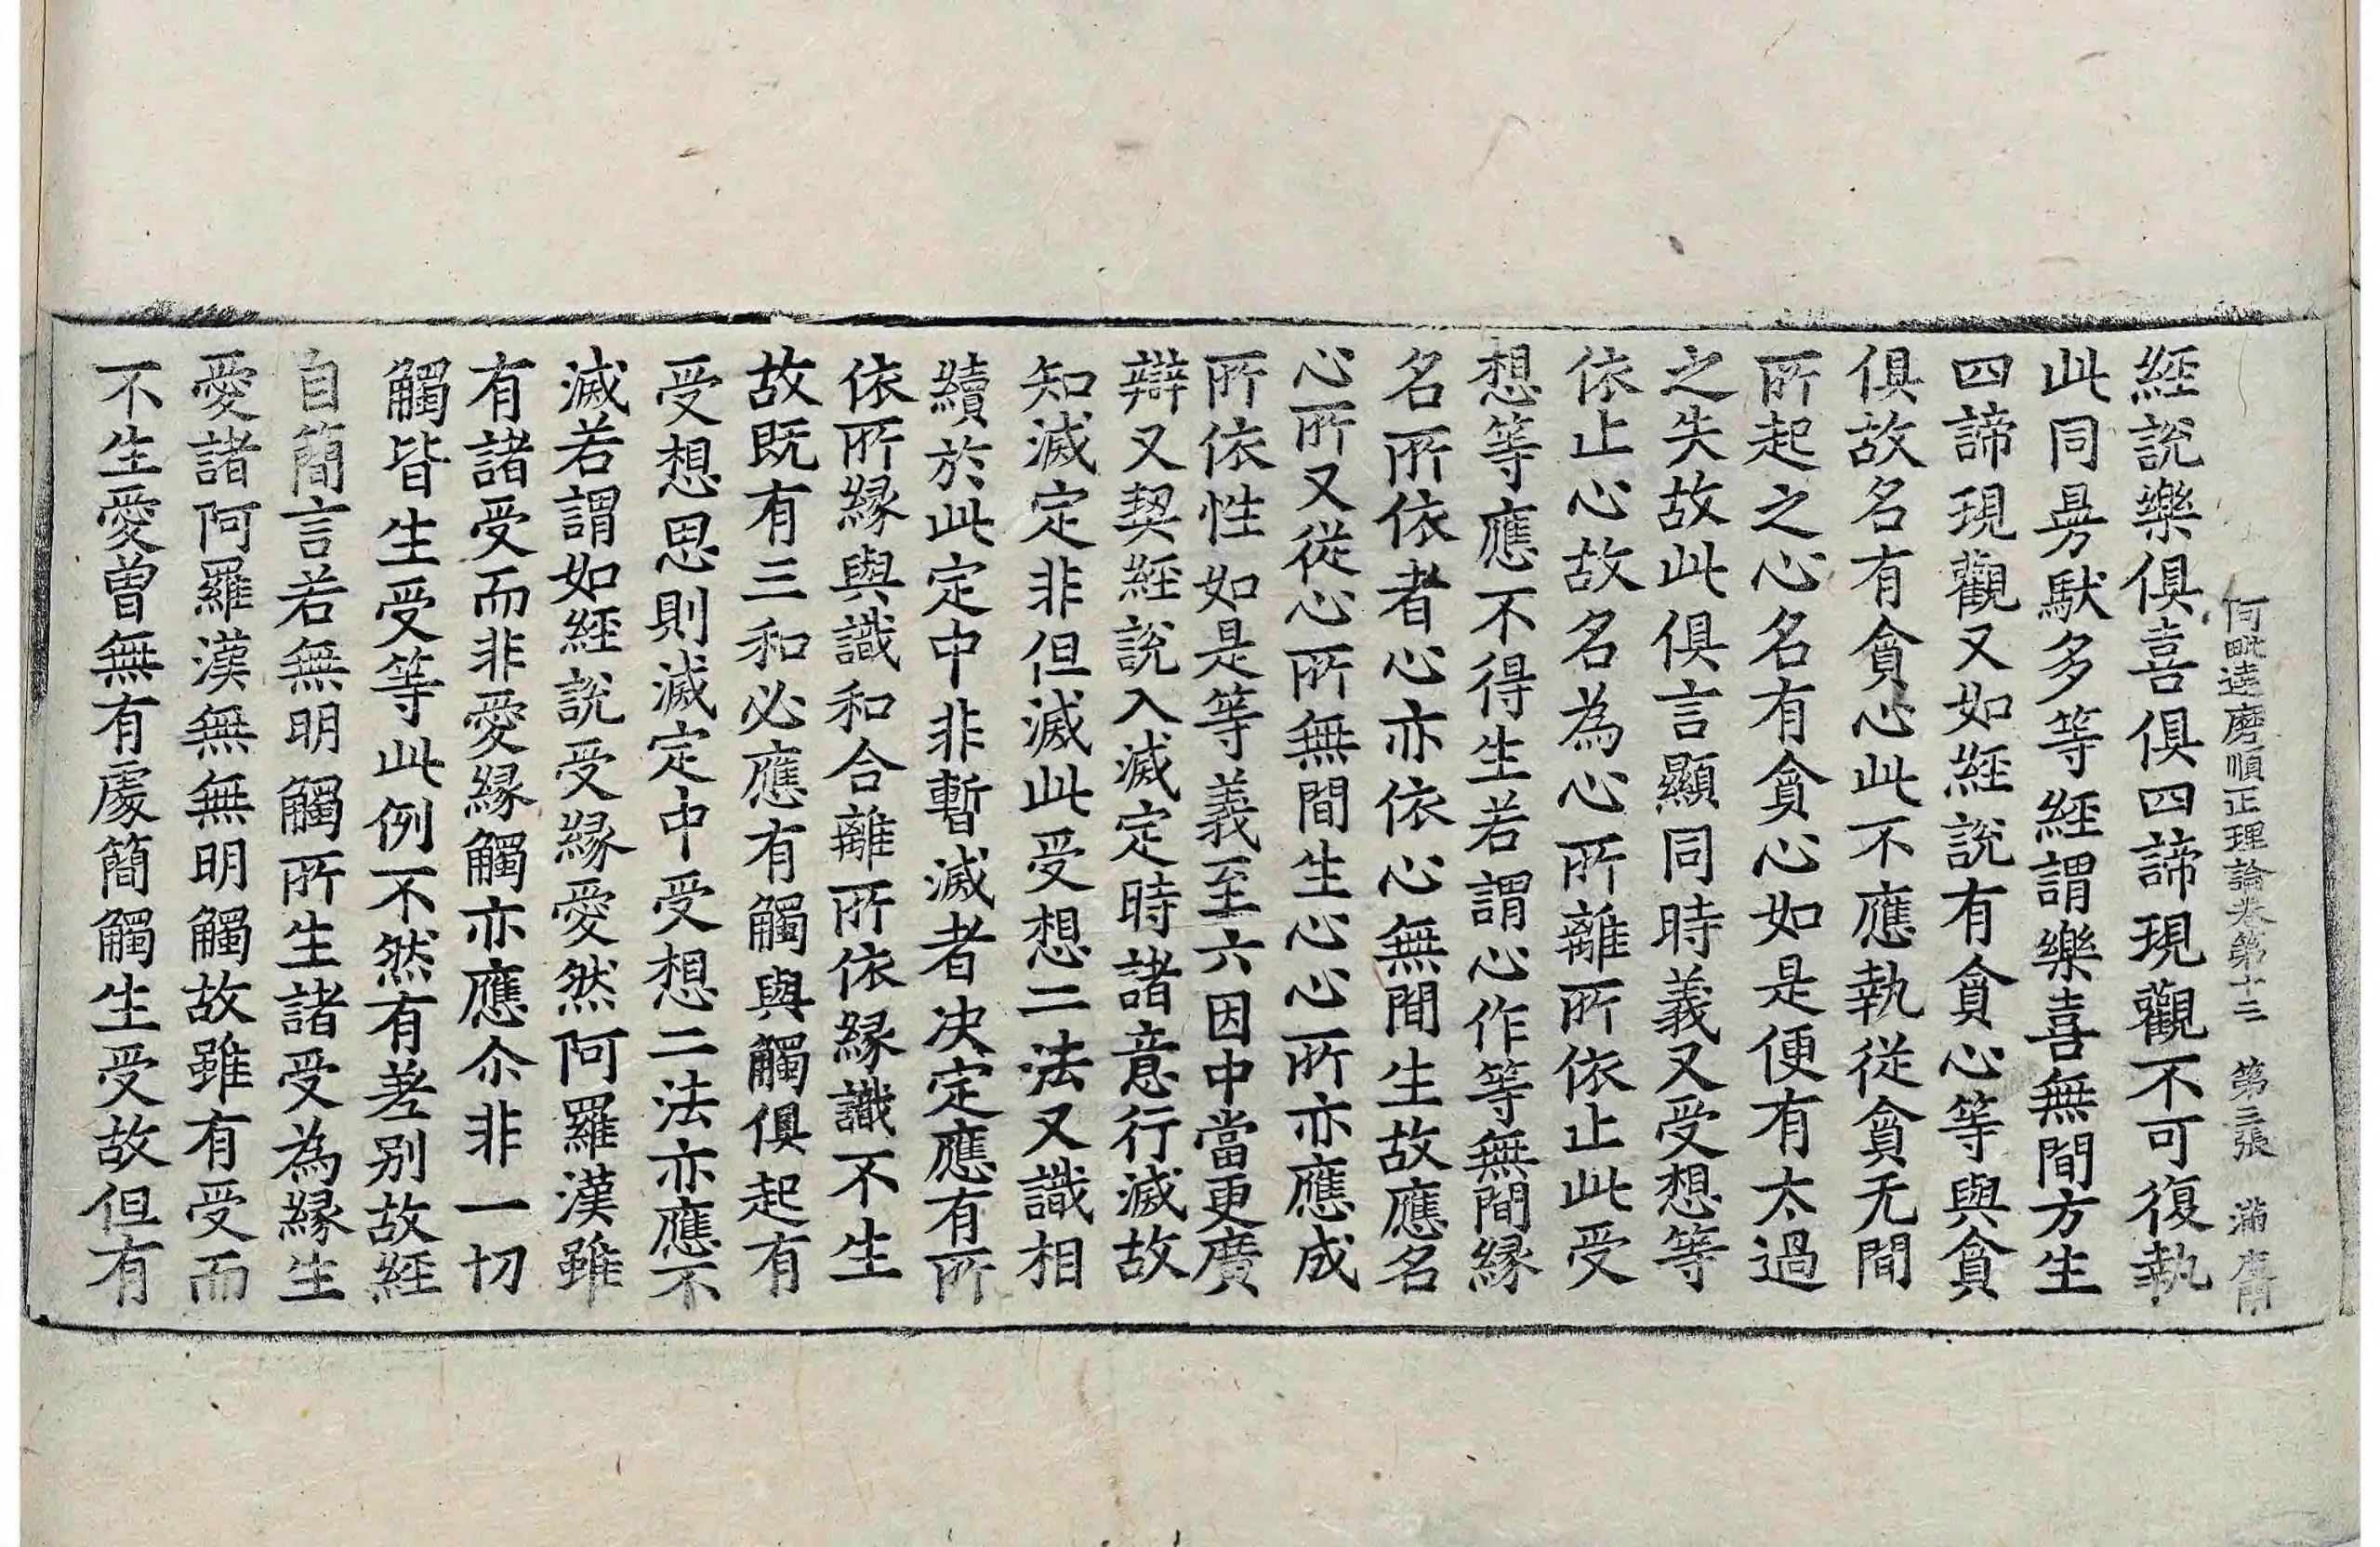 阿毗達磨順正理論卷第十二 第三張 滿
經說樂俱喜俱四諦現觀不可復執
此同㫄馱多等經謂樂喜無間方生
四諦現觀又如經說有貪心等與貪
俱故名有貪心此不應執從貪无間
所起之心名有貪心如是便有太過
之失故此俱言顯同時義又受想等
依止心故名為心所離所依止此受
想等應不得生若謂心作等無間緣
名所依者心亦依心無間生故應名
心所又從心所無間生心心所亦應成
所依性如是等義至六因中當更廣
辯又契經說入滅定時諸意行滅故
知滅定非但滅此受想二法又識相
續於此定中非暫滅者决定應有所
依所緣與識和合離所依緣識不生
故既有三和必應有觸與觸俱起有
受想思則滅定中受想二法亦應不
滅若謂如經說受緣愛然阿羅漢雖
有諸受而非愛緣觸亦應尒非一切
觸皆生受等此例不然有差别故經
自簡言若無明觸所生諸受為緣生
愛諸阿羅漢無無明觸故雖有受而
不生愛曾無有處簡觸生受故但有